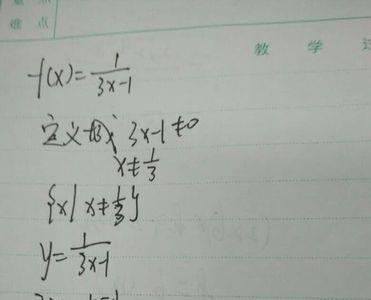 难 点
教 学
f(x)=1/(3x-1)
定义域 3x-1≠0
x≠1/3
{x|x≠1/3}
y=1/(3x-1)